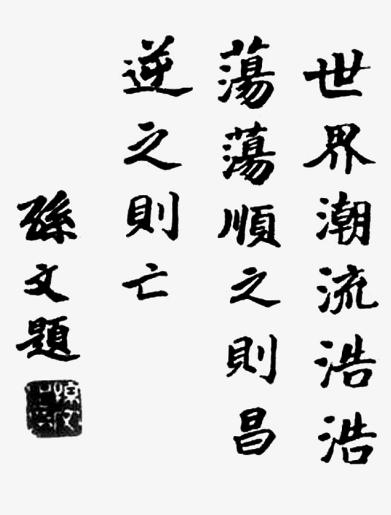 世界潮流浩浩
蕩蕩順之則昌
逆之則亡
孫文題